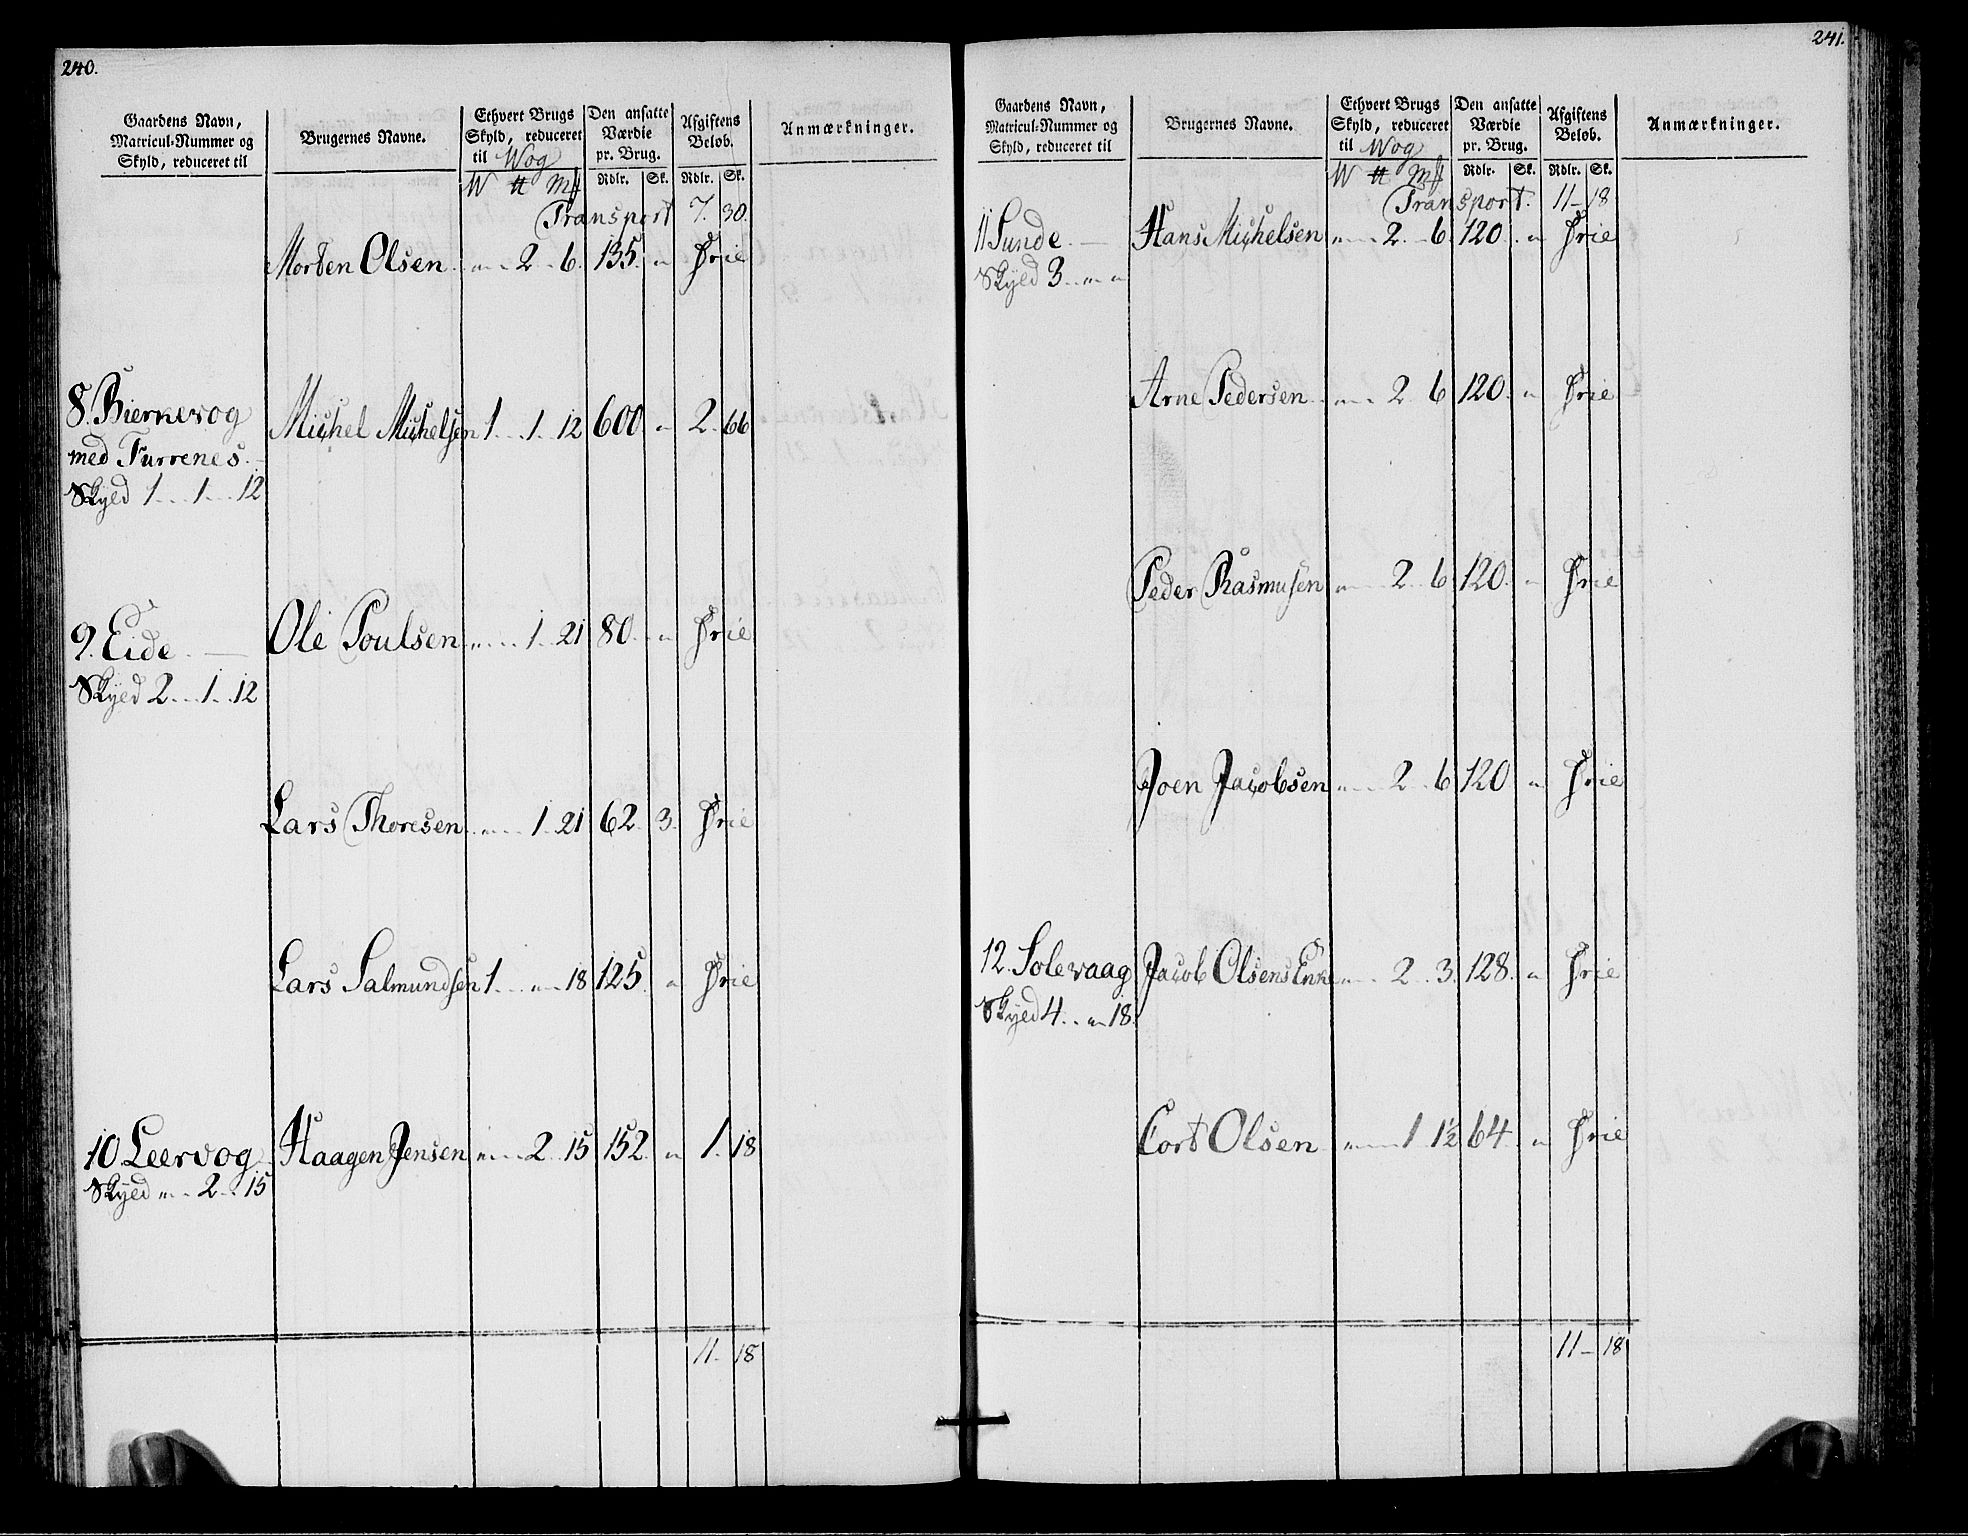 240.
Gaardens Navn, Matricul-Nummer og Skyld, reduceret til
Brugernes Navne.
Ethvert Brugs Skyld, reduceret til Wog
Den ansatte Værdie pr. Brug.
Afgiftens Beløb.
Anmærkninger.
W ℔ Mk Rdlr. Sk. Rdlr. Sk.
Transport 7. 30.
Morten Olsen „ 2 6. 135. „ Frie
8. Bierkevog Michel Michelsen 1 1 12 600 „ 2. 66
med Furrenes.
Skyld 1 1 12
9. Eide Ole Poulsen „ 1 21 80 „ Frie
Skyld 2 1 12
Lars Thoresen „ 1 21 62 3. Frie
Lars Salmundsen 1 „ 18 125. „ Frie
10 Leervog Haagen Jensen „ 2 15 152. „ 1. 18
Skyld „ 2 15
11. 18
241.
Gaardens Navn, Matricul-Nummer og Skyld, reduceret til
Brugernes Navne.
Ethvert Brugs Skyld, reduceret til Wog
Den ansatte Værdie pr. Brug.
Afgiftens Beløb.
Anmærkninger.
W ℔ Mk Rdlr. Sk. Rdlr. Sk.
Transport. 11 - 18
11 Sunde Hans Michelsen „ 2 6. 120 „ Frie
Skyld 3 „ „
Arne Pedersen „ 2 6 120. „ Frie
Peder Rasmusen „ 2 6 120. „ Frie
Joen Jacobsen „ 2 6 120 „ Frie
12. Solevaag Jacob Olsens Enke „ 2 3. 128. „ Frie
Skyld 4 „ 18.
Cort Olsen „ 1 1½ 64 „ Frie
11 - 18